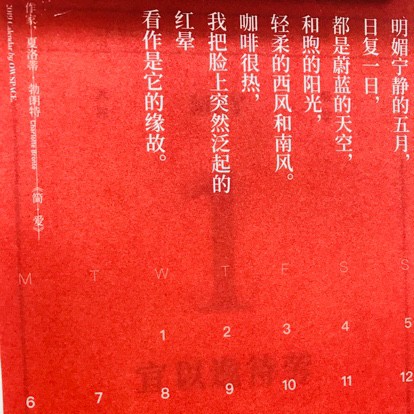 明媚宁静的五月,
日复一日,
都是蔚蓝的天空,
和煦的阳光,
轻柔的西风和南风。
咖啡很热,
我把脸上突然泛起的
红晕
看作是它的缘故。
作家,夏洛蒂—勃朗特 ——《简—爱》
2019 Calendar by OWSPACE
M T W T F S S
1 2 3 4 5
6 7 8 9 10 11 12